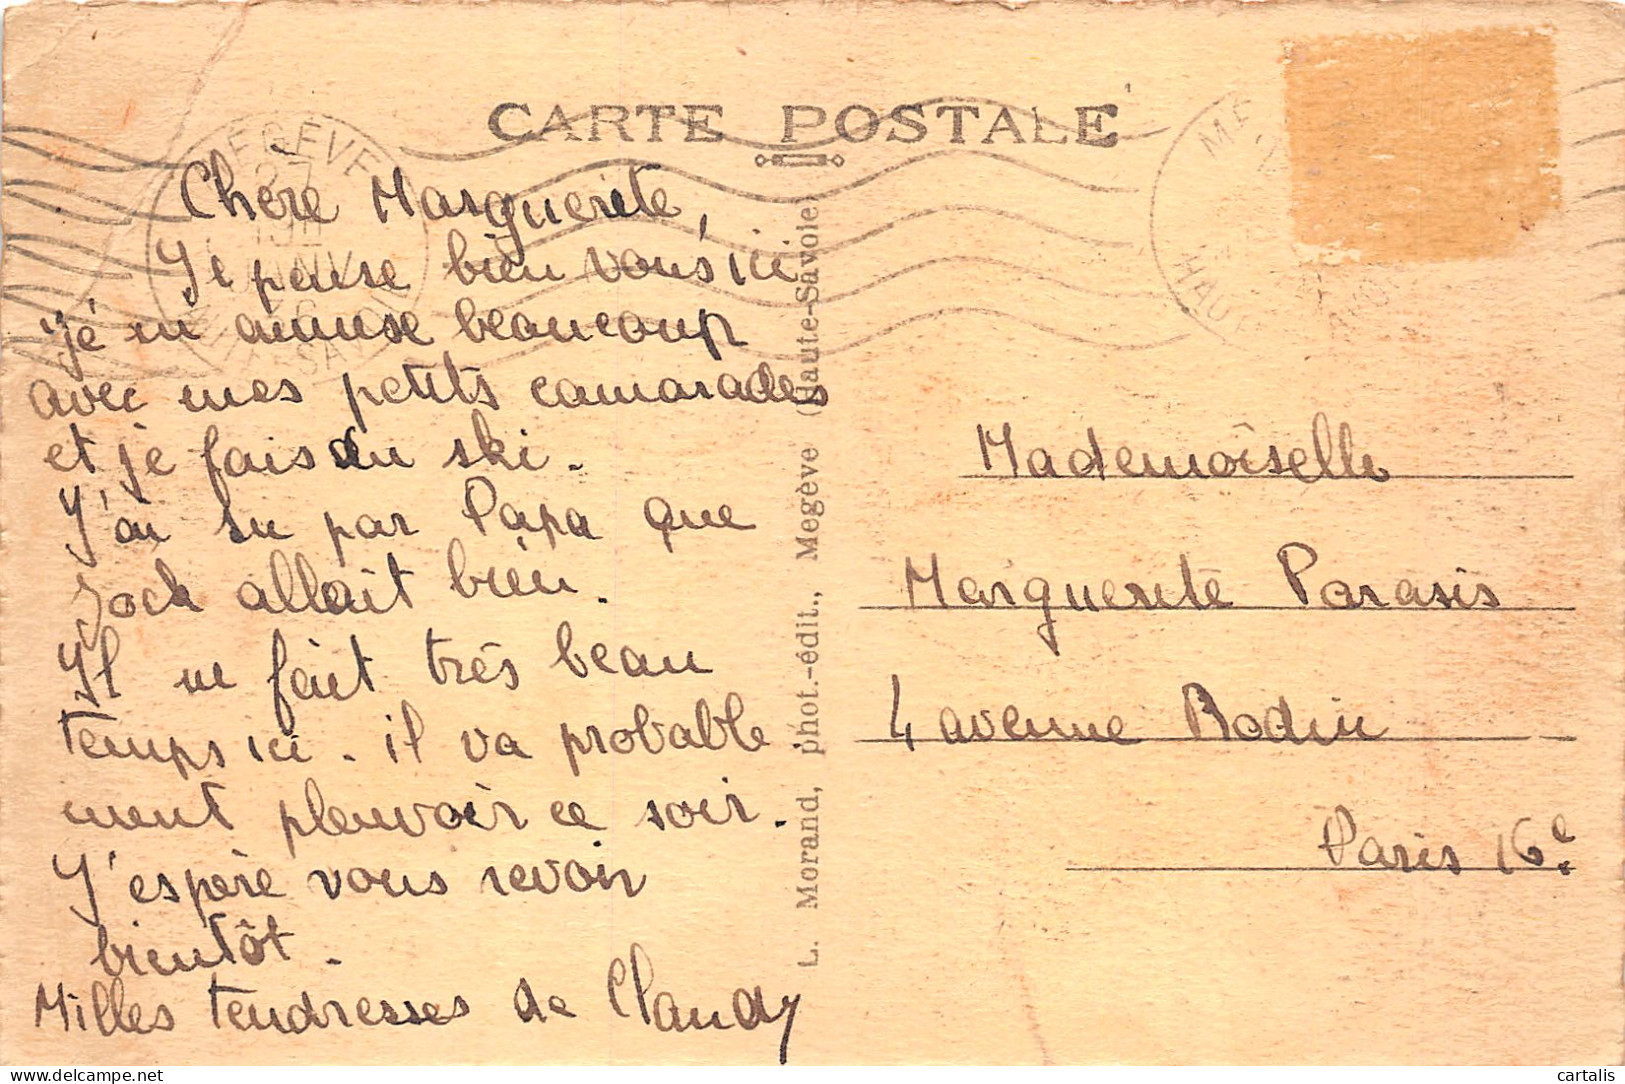 CARTE POSTALE
MEGÈVE
Chère Marguerite,
Je pense bien vous ici
je m'amuse beaucoup
avec mes petits camarades
et je fais du ski.
J'ai su par Papa que
Jock allait bien.
Il ne fait très beau
temps ici. il va probable
ment pleuvoir ce soir.
J'espère vous revoir
bientôt.
Milles tendresses de Claudy
L. Morand, phot.-édit., Megève (Haute-Savoie)
Mademoiselle
Marguerite Parasis
4 avenue Rodin
Paris 16e
cartalis